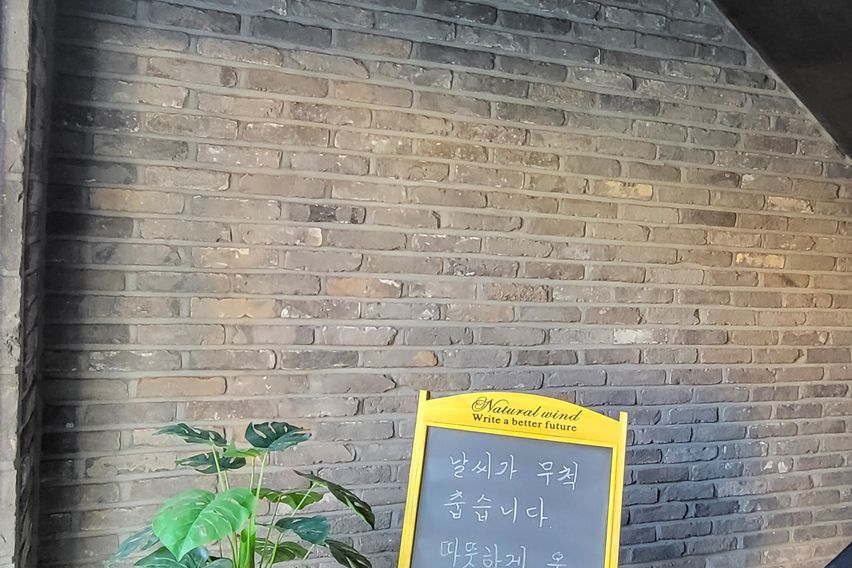 Natural wind
Write a better future
날씨가 무척
춥습니다.
따뜻하게